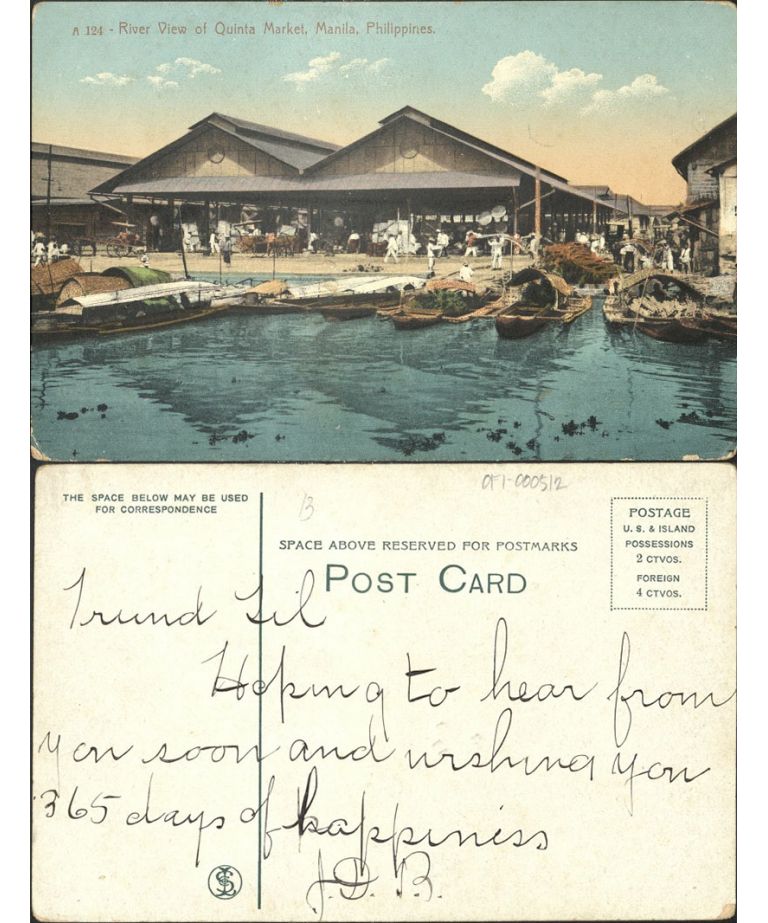 A 124 - River View of Quinta Market, Manila, Philippines.
OF1-000512
THE SPACE BELOW MAY BE USED
FOR CORRESPONDENCE
13
SPACE ABOVE RESERVED FOR POSTMARKS
POST CARD
POSTAGE
U. S. & ISLAND
POSSESSIONS
2 CTVOS.
FOREIGN
4 CTVOS.
Friend Gil
Hoping to hear from
you soon and wishing you
365 days of happiness
J. D. B.